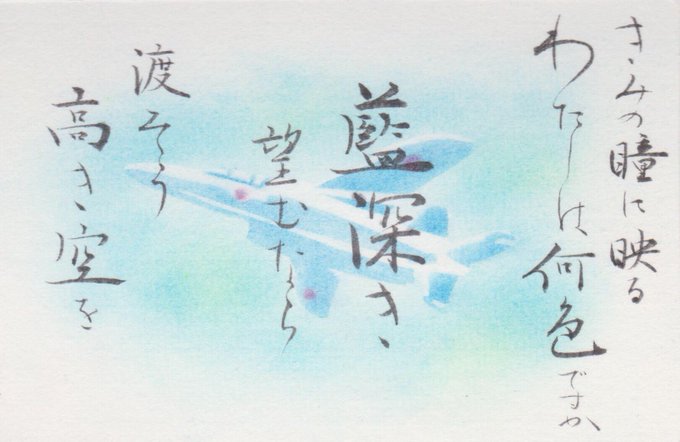 きみの瞳に映る
わたしは何色ですか
藍深き
望むなら
渡そう
高き空を